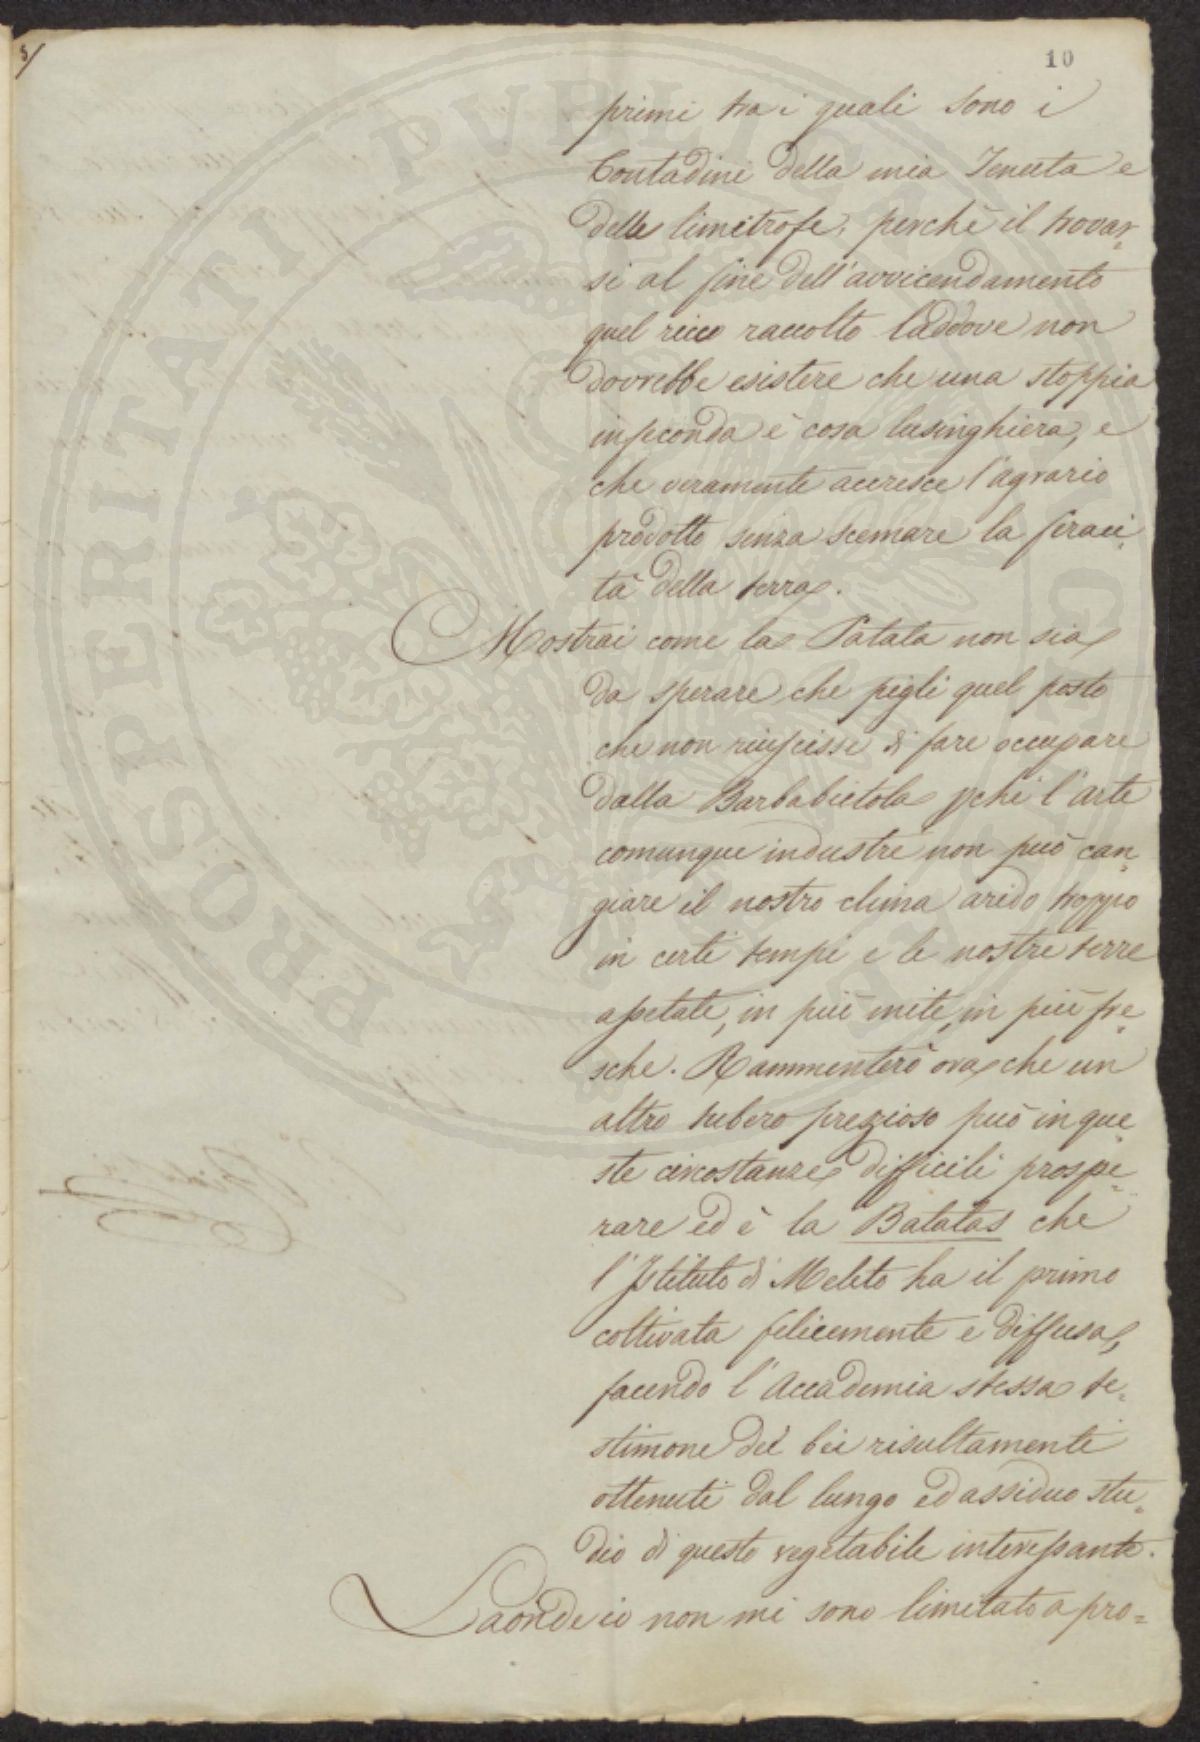 5/
10
primi tra i quali sono i
Contadini della mia Tenuta e
delle limitrofe, perchè il trovar=
si al fine dell'avvicendamento
quel ricco raccolto laddove non
dovrebbe esistere che una stoppia
infeconda è cosa lusinghiera, e
che veramente accresce l'agrario
prodotto senza scemare la feraci=
tà della terra.
Mostrai come la Patata non sia
da sperare che pigli quel posto
che non riuscisse di fare occupare
dalla Barbabietola pchè l'arte
comunque industre non può can=
giare il nostro clima arido troppo
in certi tempi e le nostre terre
assetate, in più mite, in più fre=
sche. Rammenterò ora che un
altro tubero prezioso può in que=
ste circostanze difficili prospe=
rare ed è la Batatas che
l'Istituto di Meleto ha il primo
coltivata felicemente e diffusa,
facendo l'Accademia stessa te=
stimone dei bei risultamenti
ottenuti dal lungo ed assiduo stu=
dio di questo vegetabile interessante.
Laonde io non mi sono limitato a pro=
PROSPERITATI PUBLICAE AUGENDAE